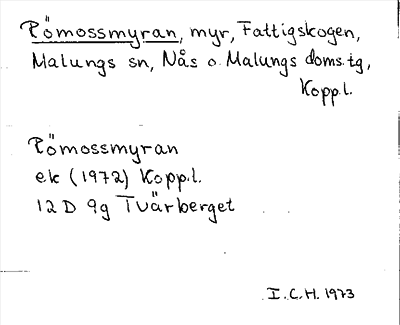 Römossmyran, myr, Fattigskogen,
Malungs sn, Nås o. Malungs doms.tg,
Kopp.l.
Römossmyran
ek (1972) Kopp.l.
12 D 9g Tvärberget
I.C.H. 1973